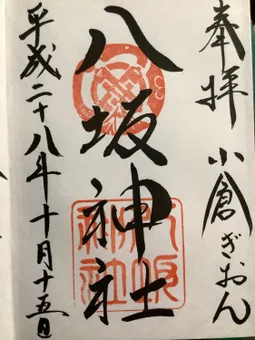 奉拝 小倉ぎおん
八坂神社
八坂神社
平成二十八年十月十五日